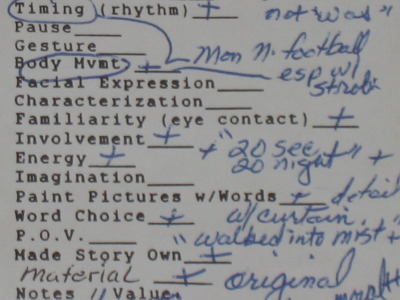 Timing (rhythm) + not "was"
Pause
Gesture Mon n. football
Body Mvmt + esp w/
Facial Expression strobe
Characterization
Familiarity (eye contact) +
Involvement + + "20 sec
Energy + 20 night" +
Imagination
Paint Pictures w/Words + detail
Word Choice + w/ curtain,
P.O.V. "walked into mist" +
Made Story Own +
Material + original
Notes // Value